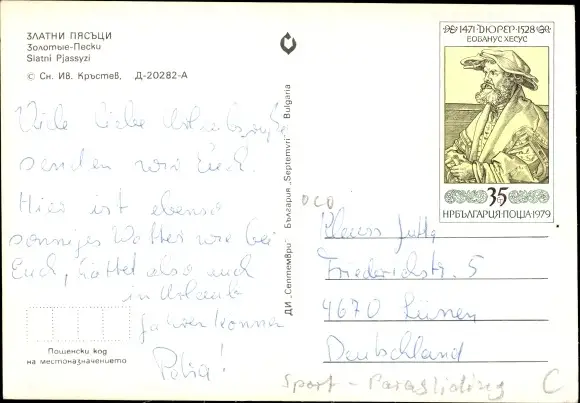 ЗЛАТНИ ПЯСЪЦИ
Золотые-Пески
Slatni Pjassyzi
© Сн. Ив. Кръстев, Д-20282-А
Viele liebe Urlaubsgrüße
senden wir Euch.
Hier ist ebenso
sonniges Wetter wie bei
Euch, hättet also auch
in Urlaub
fahren können
Petra!
Пощенски код
на местоназначението
ДИ „Септември" България „Septemvri" Bulgaria
1471 ДЮРЕР 1528
ЕОБАНУС ХЕСУС
35
НР БЪЛГАРИЯ·ПОЩА 1979
Klauss Jutta
Friederichstr. 5
4670 Lünen
Deutschland
Sport - Paragliding C